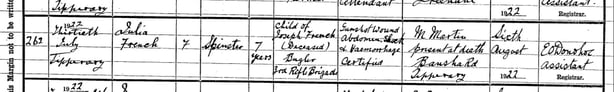 Tipperary
Attendant
1922
Registrar.
262
1922
Thirtieth
July
Tipperary
Julia
French
F
Spinster
7
years
Child of
Joseph French
(Deceased)
Bugler
3rd Rifle Brigade
Gunshot wound
Abdomen Shock
& Haemorrhage
Certified
M Martin
present at death
Bansha Rd
Tipperary
Sixth
August
1922
EO'Donohoe
Assistant
Registrar.
is Margin not to be writte
1922